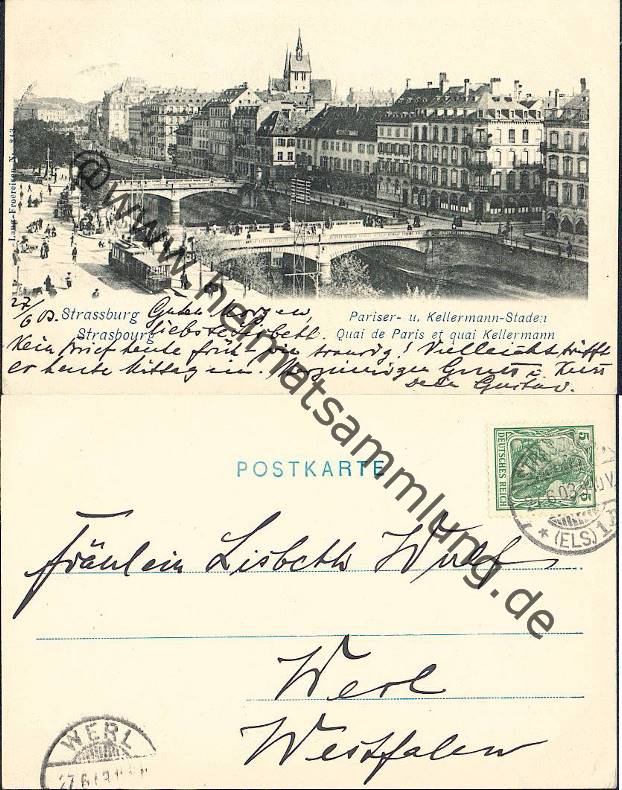 Lang-Froereisen No. 343
27/6 03.
Strassburg
Strasbourg
Pariser- u. Kellermann-Staden
Quai de Paris et quai Kellermann
Guten Morgen,
liebstes Lisbetl.
Kein Brief heute früh! Bin traurig! Vielleicht trifft
er heute Mittag ein. Herzinnigen Gruss u. Kuss
dein Gustav.
@www.heimatsammlung.de
POSTKARTE
DEUTSCHES REICH
5 5
27.6.03
* (ELS) 1
Fräulein Lisbeth Wulf
Werl
Westfalen
WERL
27.6.03